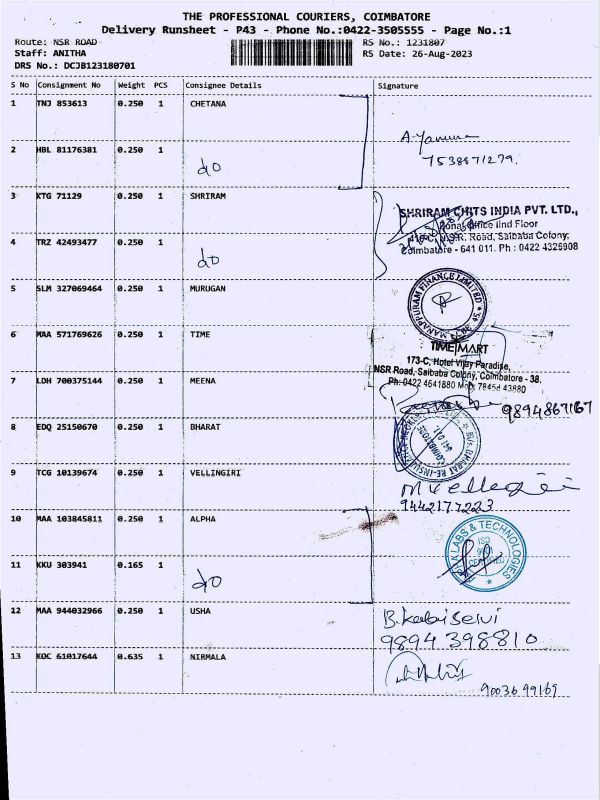 THE PROFESSIONAL COURIERS, COIMBATORE
Delivery Runsheet - P43 - Phone No.:0422-3505555 - Page No.:1
Route: NSR ROAD RS No.: 1231807
Staff: ANITHA RS Date: 26-Aug-2023
DRS No.: DCJB123180701
S No Consignment No Weight PCS Consignee Details Signature
1 TNJ 853613 0.250 1 CHETANA
A. Yamuna
7538871279.
2 HBL 81176381 0.250 1
do
3 KTG 71129 0.250 1 SHRIRAM
SHRIRAM CHITS INDIA PVT. LTD.,
Zonal Office IInd Floor
N.S.R. Road, Saibaba Colony,
Coimbatore - 641 011. Ph : 0422 4326908
4 TRZ 42493477 0.250 1
do
5 SLM 327069464 0.250 1 MURUGAN
MANAPPURAM FINANCE LIMITED
6 MAA 571769626 0.250 1 TIME
TIME MART
173-C, Hotel Vijay Paradise,
NSR Road, Saibaba Colony, Coimbatore - 38.
Ph: 0422 4641880 Mob: 78458 43880
7 LDH 700375144 0.250 1 MEENA
9894867167
8 EDQ 25150670 0.250 1 BHARAT
COIMBATORE
641 011
9 TCG 10139674 0.250 1 VELLINGIRI
M Vellegiri
9442177223
10 MAA 103845811 0.250 1 ALPHA
LABS & TECHNOLOGIES
ISO
9001
CERTIFIED
11 KKU 303941 0.165 1
do
12 MAA 944032966 0.250 1 USHA
B. kalaiselvi
9894398810
13 KOC 61017644 0.635 1 NIRMALA
9003699169